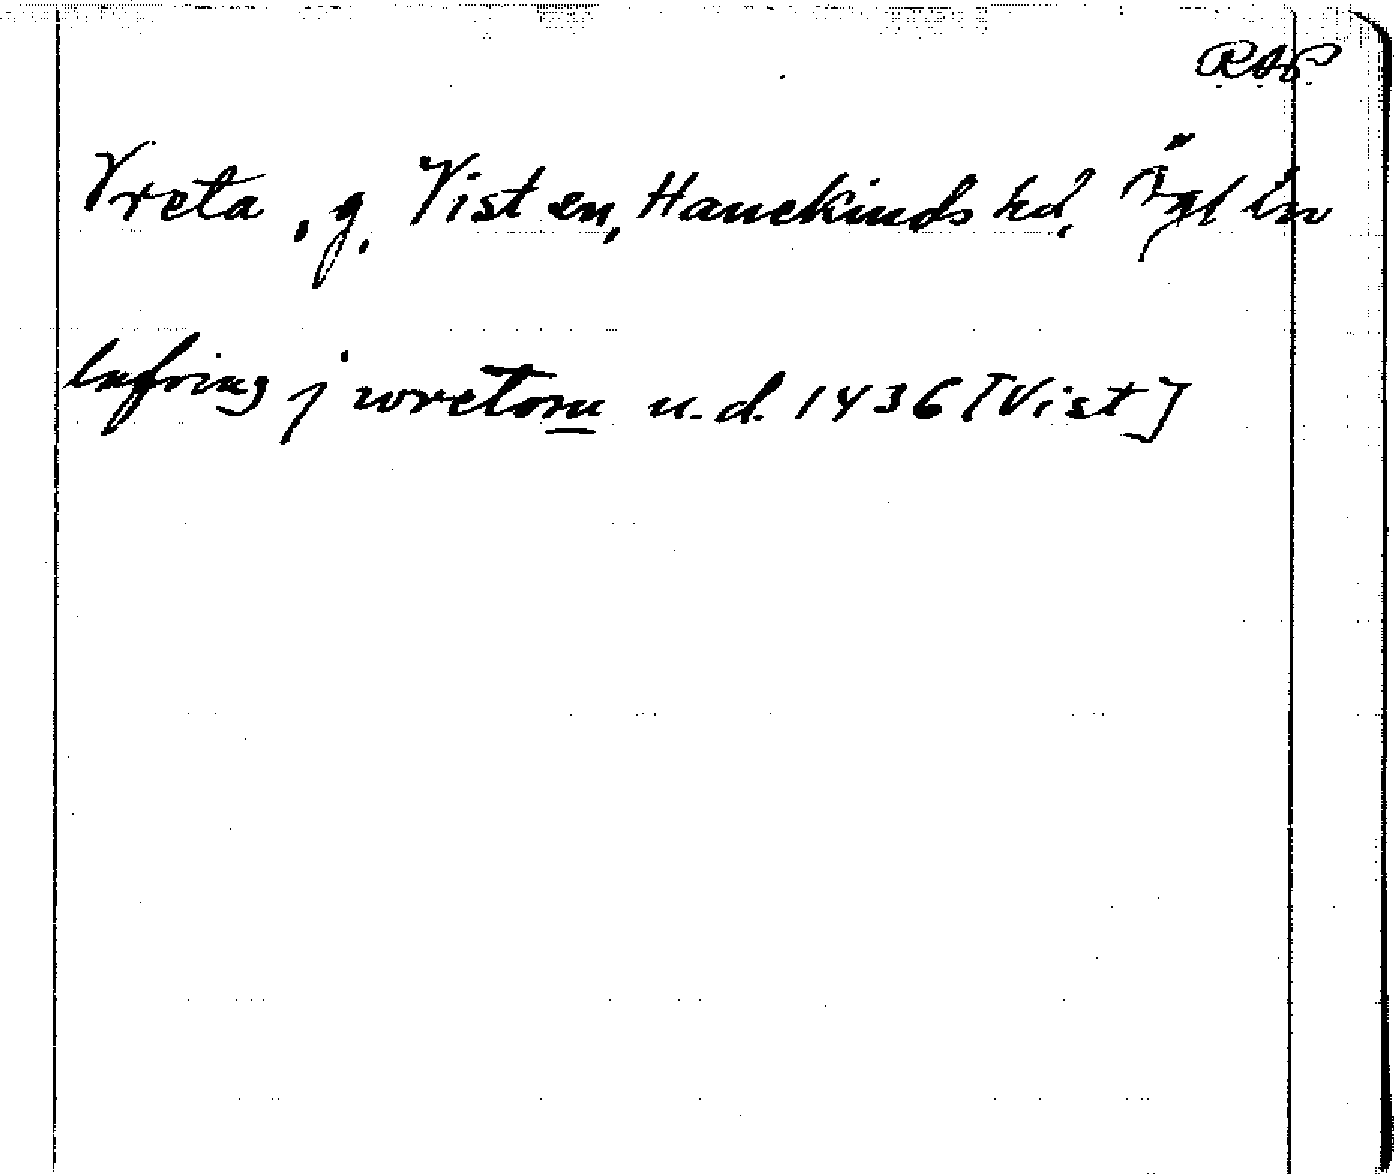 RAP
Vreta, g. Vist sn, Hanekinds hd, Ögl län
j wretom u.d. 1436 [Vist]